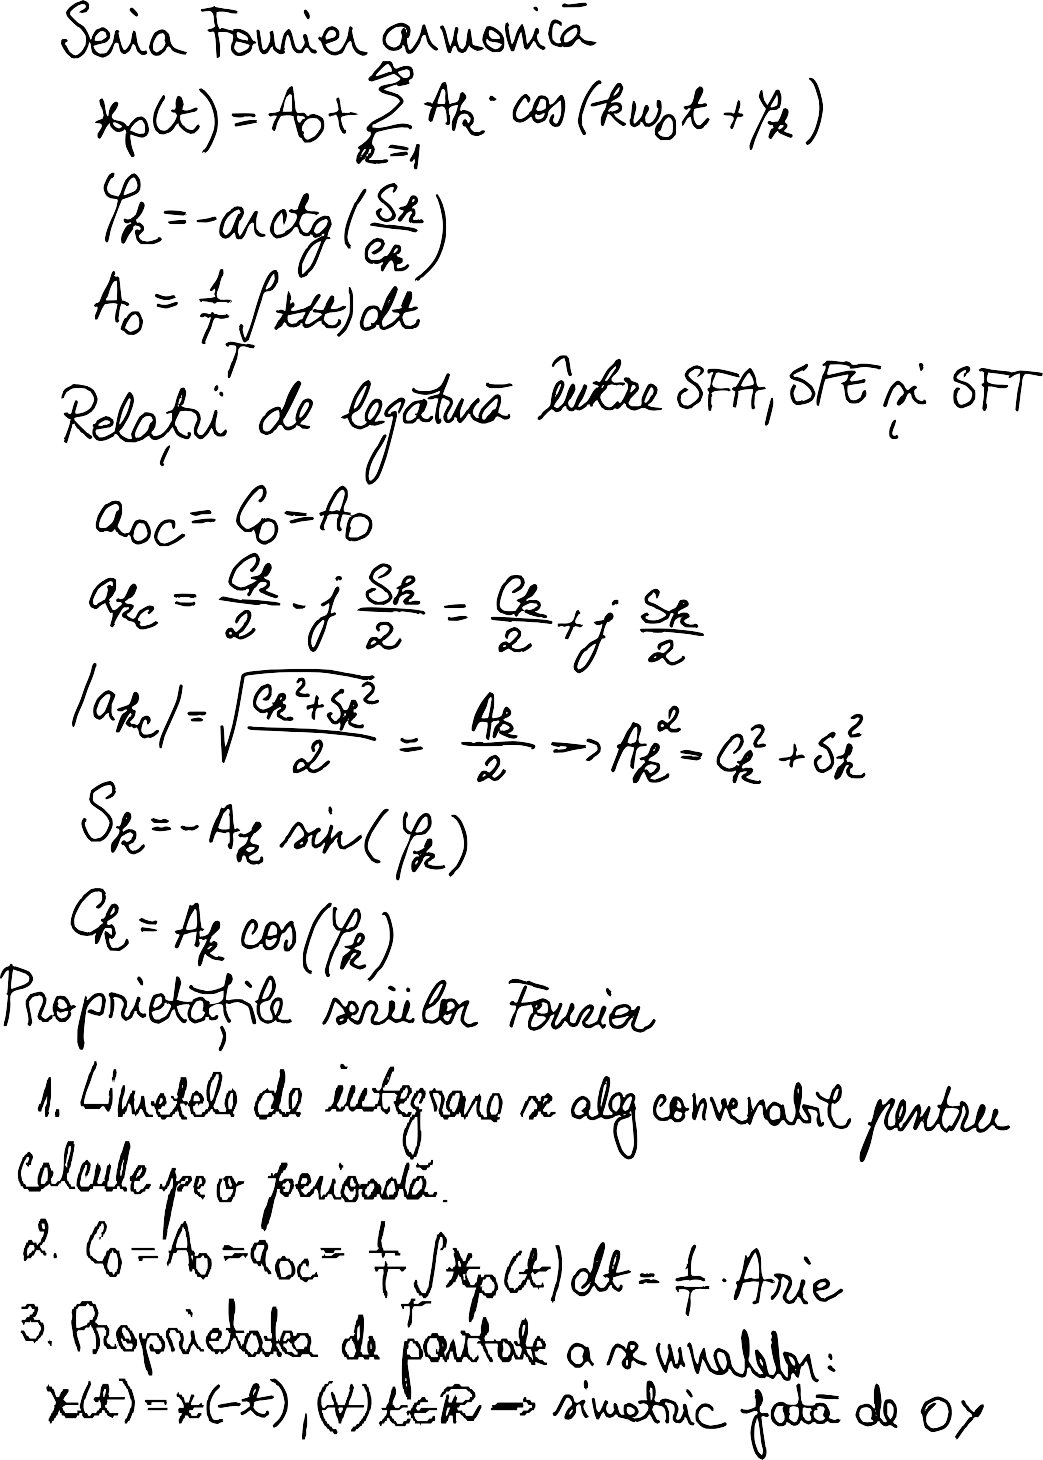 Seria Fourier armonică
xp(t) = A0 + ∑_{k=1}^{∞} Ak · cos(kω0t + φk)
φk = -arctg(Sk/Ck)
A0 = 1/T ∫_T x(t) dt
Relații de legătură între SFA, SFE și SFT
a0c = C0 = A0
akc = Ck/2 - j Sk/2 = Ck/2 + j Sk/2
|akc| = √((Ck² + Sk²)/2) = Ak/2 → Ak² = Ck² + Sk²
Sk = -Ak sin(φk)
Ck = Ak cos(φk)
Proprietățile seriilor Fourier
1. Limetele de integrare se aleg convenabil pentru
calcule pe o perioadă.
2. C0 = A0 = a0c = 1/T ∫_T xp(t) dt = 1/T · Arie
3. Proprietatea de paritate a semnalelor:
x(t) = x(-t), (∀) t∈ℝ → simetric fată de OY